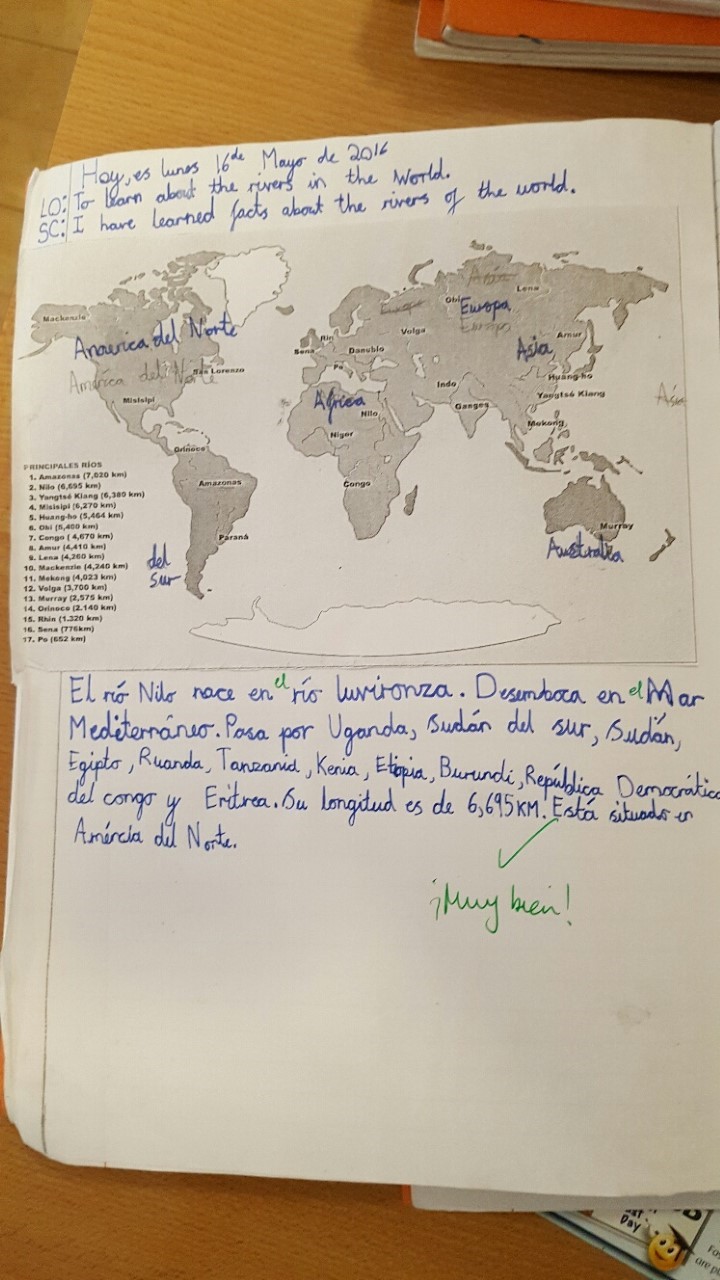 Hoy, es lunes 16 de Mayo de 2016
LO: To learn about the rivers in the World.
SC: I have learned facts about the rivers of the world.
Mackenzie
Anaverica del Norte
América del Norte
San Lorenzo
Misisipi
Orinoco
Amazonas
Paraná
del
sur
Rin
Sena
Danubio
Po
Volga
Obi
Europa
Europa
Europa
Asia
Lena
Asia
Amur
Huang-ho
Yangtsé Kiang
Indo
Ganges
Mekong
Africa
Nilo
Niger
Congo
Asia
Murray
Australia
PRINCIPALES RÍOS
1. Amazonas (7,020 km)
2. Nilo (6,695 km)
3. Yangtsé Kiang (6,380 km)
4. Misisipi (6,270 km)
5. Huang-ho (5,464 km)
6. Obi (5,400 km)
7. Congo ( 4,670 km)
8. Amur (4,410 km)
9. Lena (4,260 km)
10. Mackenzie (4,240 km)
11. Mekong (4,023 km)
12. Volga (3,700 km)
13. Murray (2,575 km)
14. Orinoco (2.140 km)
15. Rhin (1.320 km)
16. Sena (776km)
17. Po (652 km)
El río Nilo nace en el río luvironza. Desemboca en el Mar
Mediterráneo. Pasa por Uganda, Sudán del sur, Sudán,
Egipto, Ruanda, Tanzania, Kenia, Etiopia, Burundi, República Democrática
del congo y Eritrea. Su longitud es de 6,695KM. Está situado en
Amércia del Norte.
¡Muy bien!
Day